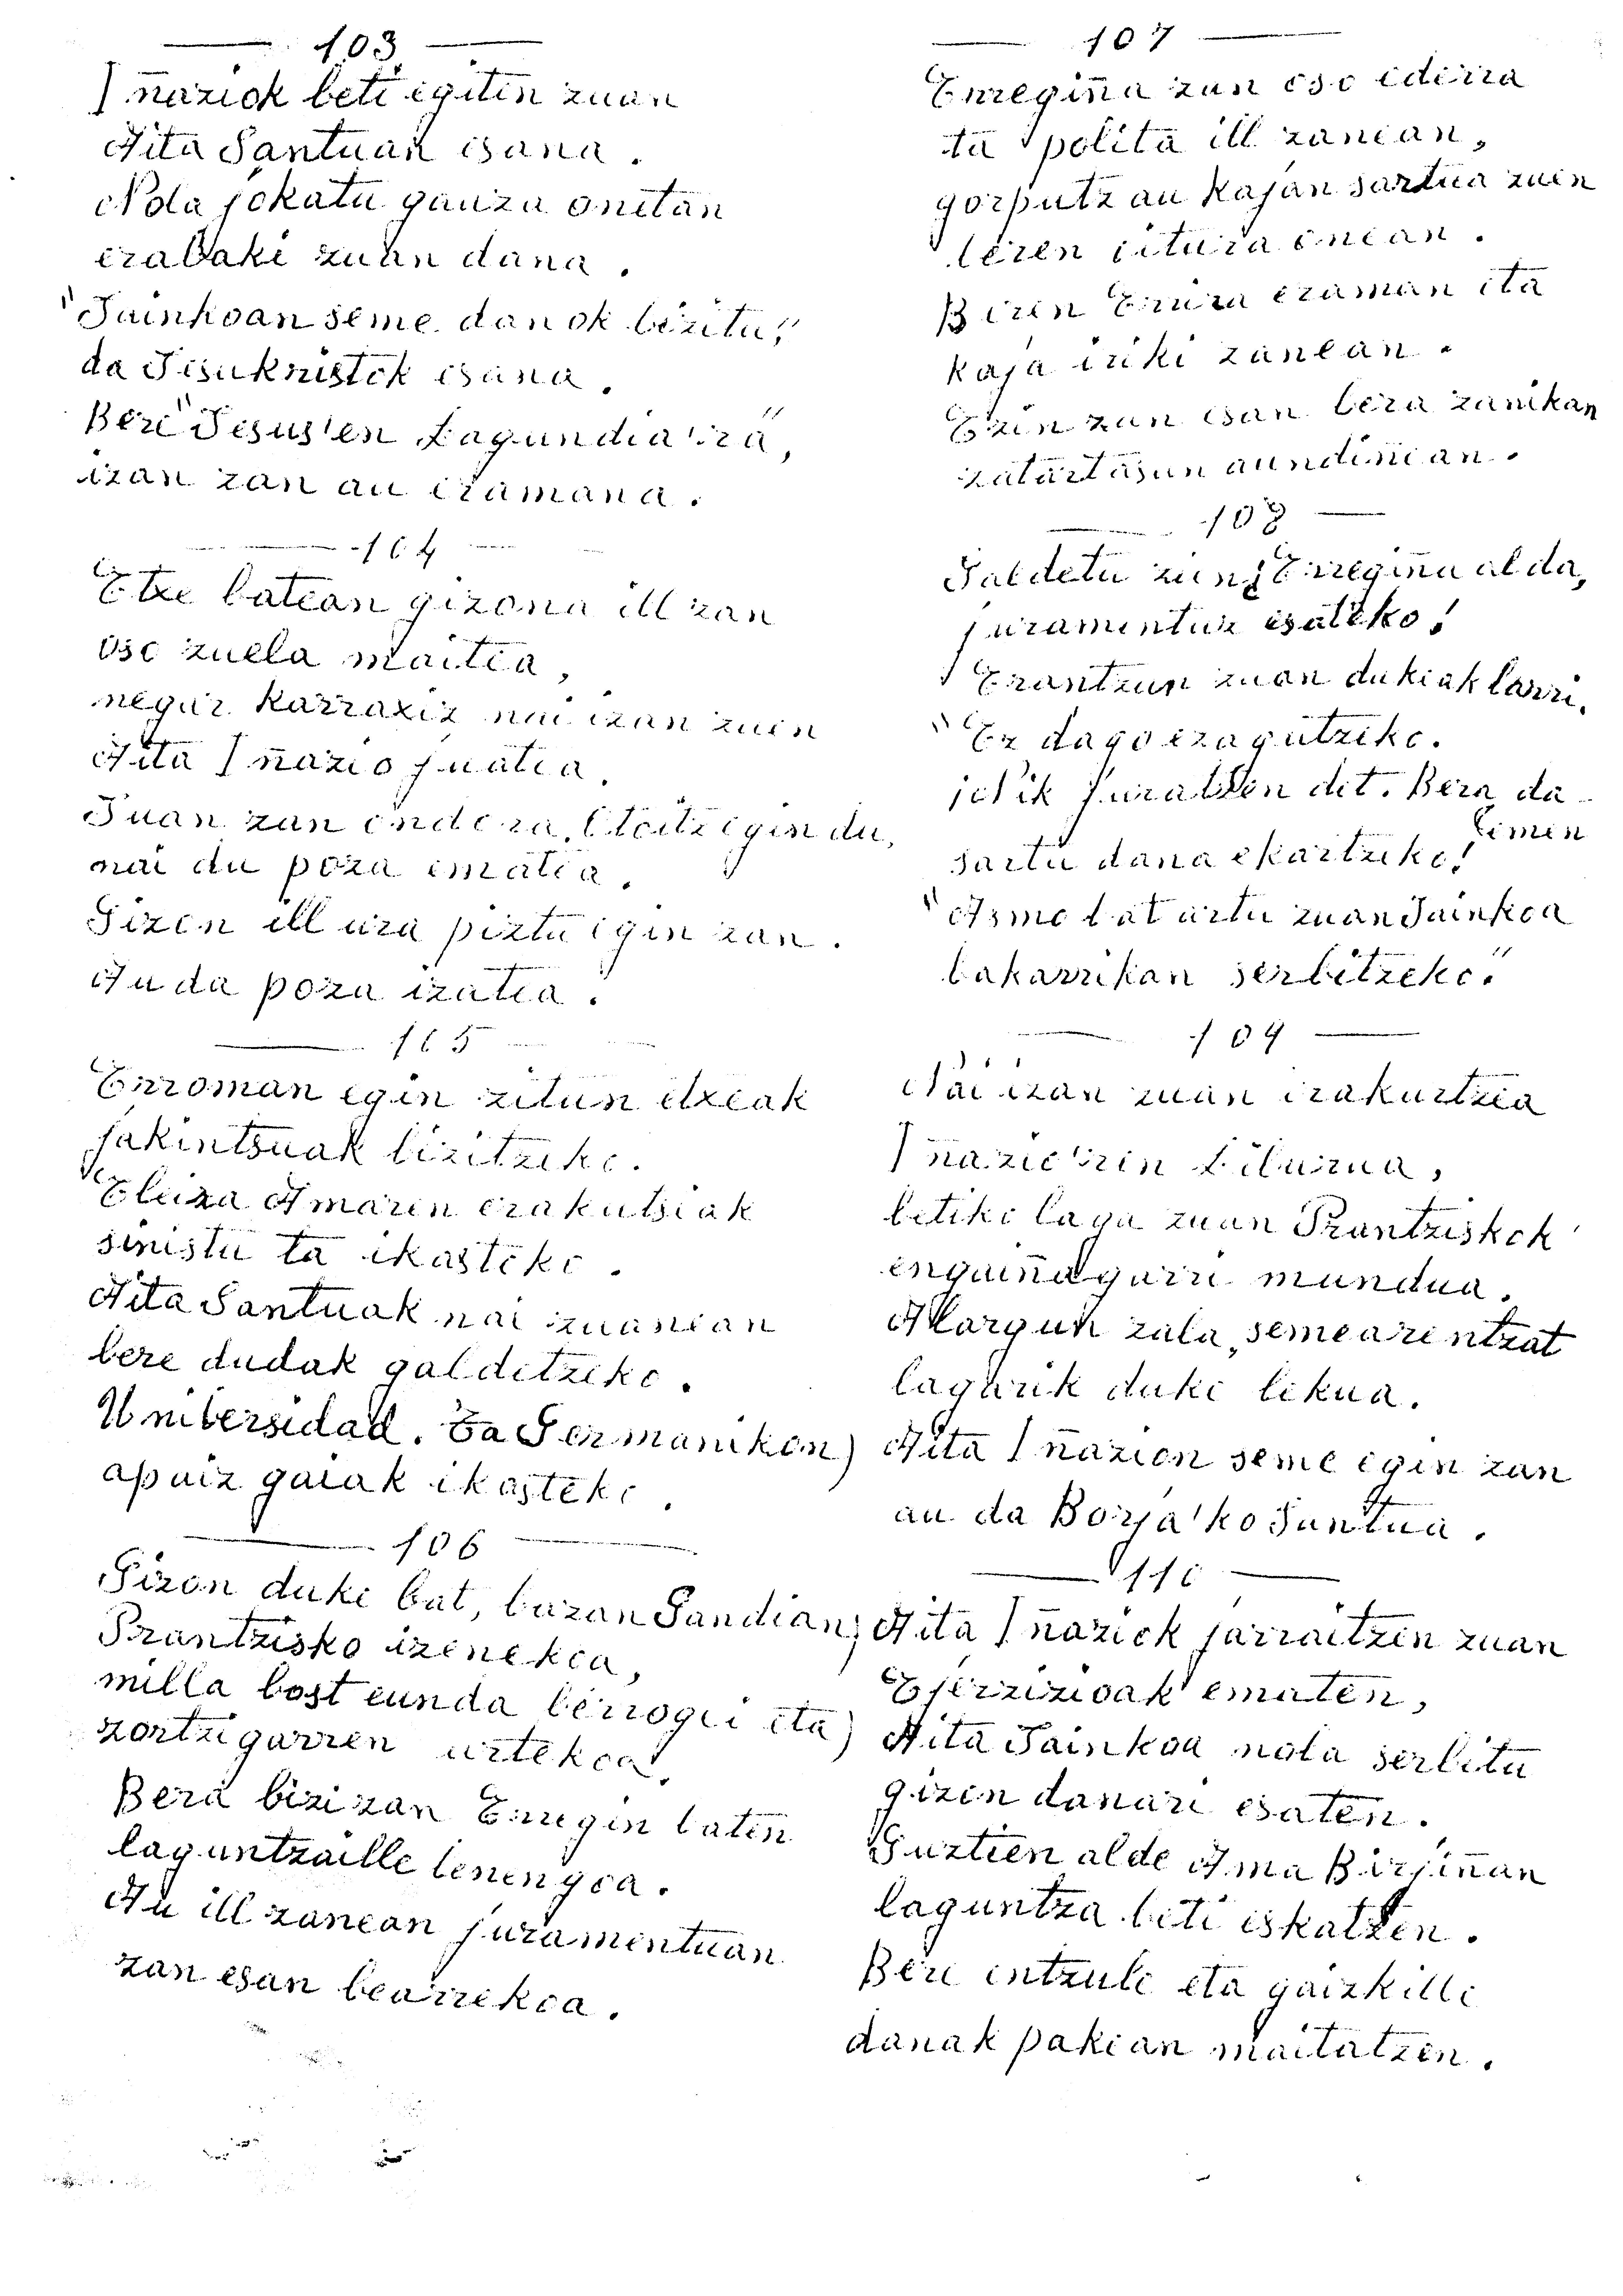 103
Iñaziok beti egiten zuan
Aita Santuan esana.
Nola jokatu gauza onetan
erabaki zuan dana.
"Jainkoan seme danok bizitu,"
da Jesukristok esana.
Bere "Jesus'en Lagundia'ra",
izan zan au eramana.
104
Etxe batean gizona ill zan
oso zuela maitea,
negar karraxiz nai izan zuen
Aita Iñazio juatea.
Juan zan ondora, Otoitz egin du,
nai du poza ematea.
Gizon ill ura piztu egin zan.
Au da poza izatea.
105
Erroman egin zitun etxeak
jakintsuak bizitzeko.
Eleiza Amaren erakutsiak
sinistu ta ikasteko.
Aita Santuak nai zuanean
bere dudak galdetzeko.
Unibersidad. Ta Germanikon
apaiz gaiak ikasteko.
106
Gizon duke bat, bazan Gandian,
Prantzisko izenekoa,
milla bost eunda berrogei eta
zortzigarren urtekoa.
Bera bizi zan Erregin baten
laguntzaille lenengoa.
Au ill zanean juramentuan
zan esan bearrekoa.
107
Erregiña zan oso ederra
ta polita ill zanean,
gorputz au kajan sartua zuen
beren itura onean.
Beren Errira eraman eta
kaja ireki zanean.
Ezin zan esan bera zanikan
zatartasun aundiñean.
108
Galdetu zien ¿Erregiña al da,
juramentuz esateko!
Erantzun zuan dukeak larri.
"Ez dago ezagutzeko.
jetsik juratzen det. Bera da
emen
sartu dana ekartzeko!
"Asmo bat artu zuan Jainkoa
bakarrikan serbitzeko."
109
Nai izan zuan irakurtzea
Iñazio'ren Liburua,
betiko laga zuan Prantziskok
engaiñagarri mundua.
Alargun zala, semearentzat
lagarik duke lekua.
Aita Iñazion seme egin zan
au da Borja'ko Santua.
110
Aita Iñaziok jarraitzen zuan
Ejerzizioak ematen,
Aita Jainkoa nola serbitu
gizon danari esaten.
Guztien alde Ama Birjiñan
laguntza beti eskatzen.
Bere entzule eta gaizkille
danak pakean maitatzen.